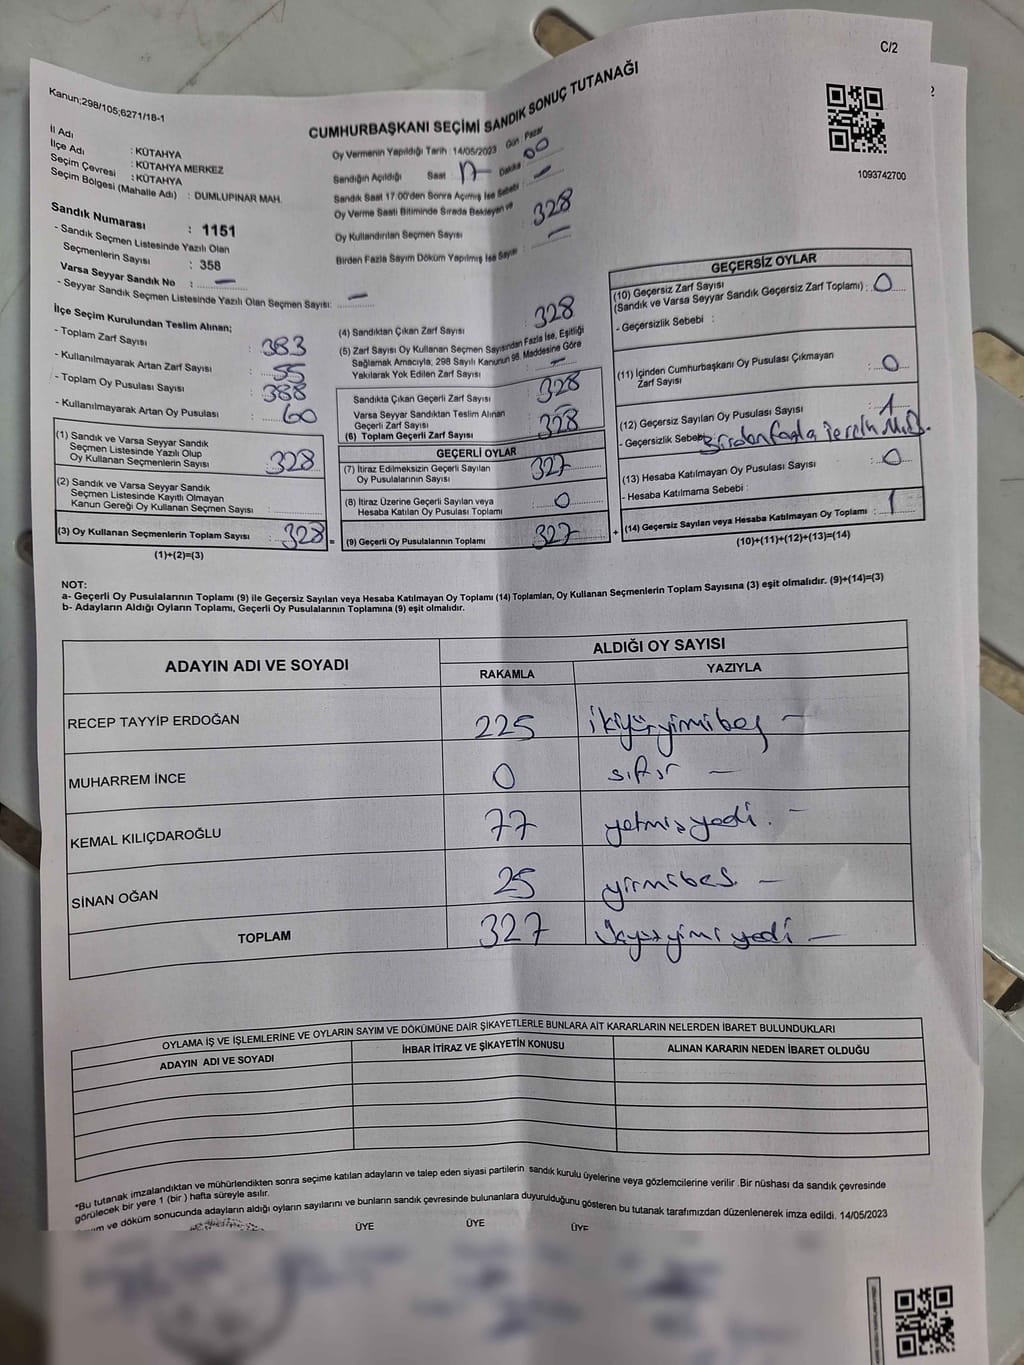 C/2
Kanun;298/105;6271/18-1
CUMHURBAŞKANI SEÇİMİ SANDIK SONUÇ TUTANAĞI
1093742700
İl Adı : KÜTAHYA
İlçe Adı : KÜTAHYA MERKEZ
Seçim Çevresi : KÜTAHYA
Seçim Bölgesi (Mahalle Adı) : DUMLUPINAR MAH.
Sandık Numarası : 1151
- Sandık Seçmen Listesinde Yazılı Olan
Seçmenlerin Sayısı : 358
Varsa Seyyar Sandık No : —
- Seyyar Sandık Seçmen Listesinde Yazılı Olan Seçmen Sayısı: —
Oy Vermenin Yapıldığı Tarih : 14/05/2023 Gün : Pazar
Sandığın Açıldığı Saat : 17 Dakika : 00
Sandık Saat 17:00'den Sonra Açılmış İse Sebebi : —
Oy Verme Saati Bitiminde Sırada Bekleyen ve
Oy Kullandırılan Seçmen Sayısı : 328
Birden Fazla Sayım Döküm Yapılmış İse Sayısı : —
İlçe Seçim Kurulundan Teslim Alınan;
- Toplam Zarf Sayısı : 383
- Kullanılmayarak Artan Zarf Sayısı : 55
- Toplam Oy Pusulası Sayısı : 388
- Kullanılmayarak Artan Oy Pusulası : 60
(1) Sandık ve Varsa Seyyar Sandık
Seçmen Listesinde Yazılı Olup
Oy Kullanan Seçmenlerin Sayısı : 328
(2) Sandık ve Varsa Seyyar Sandık
Seçmen Listesinde Kayıtlı Olmayan
Kanun Gereği Oy Kullanan Seçmen Sayısı :
(3) Oy Kullanan Seçmenlerin Toplam Sayısı : 328
(1)+(2)=(3)
(4) Sandıktan Çıkan Zarf Sayısı : 328
(5) Zarf Sayısı Oy Kullanan Seçmen Sayısından Fazla İse, Eşitliği
Sağlamak Amacıyla; 298 Sayılı Kanunun 98. Maddesine Göre
Yakılarak Yok Edilen Zarf Sayısı : —
Sandıkta Çıkan Geçerli Zarf Sayısı : 328
Varsa Seyyar Sandıktan Teslim Alınan
Geçerli Zarf Sayısı :
(6) Toplam Geçerli Zarf Sayısı : 328
GEÇERLİ OYLAR
(7) İtiraz Edilmeksizin Geçerli Sayılan
Oy Pusulalarının Sayısı : 327
(8) İtiraz Üzerine Geçerli Sayılan veya
Hesaba Katılan Oy Pusulası Toplamı : 0
(9) Geçerli Oy Pusulalarının Toplamı : 327
GEÇERSİZ OYLAR
(10) Geçersiz Zarf Sayısı
(Sandık ve Varsa Seyyar Sandık Geçersiz Zarf Toplamı) : 0
- Geçersizlik Sebebi :
(11) İçinden Cumhurbaşkanı Oy Pusulası Çıkmayan
Zarf Sayısı : 0
(12) Geçersiz Sayılan Oy Pusulası Sayısı : 1
- Geçersizlik Sebebi : Birden fazla
(13) Hesaba Katılmayan Oy Pusulası Sayısı : 0
- Hesaba Katılmama Sebebi :
(14) Geçersiz Sayılan veya Hesaba Katılmayan Oy Toplamı : 1
(10)+(11)+(12)+(13)=(14)
NOT:
a- Geçerli Oy Pusulalarının Toplamı (9) ile Geçersiz Sayılan veya Hesaba Katılmayan Oy Toplamı (14) Toplamları, Oy Kullanan Seçmenlerin Toplam Sayısına (3) eşit olmalıdır. (9)+(14)=(3)
b- Adayların Aldığı Oyların Toplamı, Geçerli Oy Pusulalarının Toplamına (9) eşit olmalıdır.
ADAYIN ADI VE SOYADI ALDIĞI OY SAYISI
RAKAMLA YAZIYLA
RECEP TAYYİP ERDOĞAN 225 ikiyüzyirmibeş —
MUHARREM İNCE 0 sıfır —
KEMAL KILIÇDAROĞLU 77 yetmişyedi. —
SİNAN OĞAN 25 yirmibeş. —
TOPLAM 327 üçyüzyirmiyedi —
OYLAMA İŞ VE İŞLEMLERİNE VE OYLARIN SAYIM VE DÖKÜMÜNE DAİR ŞİKAYETLERLE BUNLARA AİT KARARLARIN NELERDEN İBARET BULUNDUKLARI
ADAYIN ADI VE SOYADI İHBAR İTİRAZ VE ŞİKAYETİN KONUSU ALINAN KARARIN NEDEN İBARET OLDUĞU
*Bu tutanak imzalandıktan ve mühürlendikten sonra seçime katılan adayların ve talep eden siyasi partilerin sandık kurulu üyelerine veya gözlemcilerine verilir .Bir nüshası da sandık çevresinde
görülecek bir yere 1 (bir ) hafta süreyle asılır.
ve döküm sonucunda adayların aldığı oyların sayılarını ve bunların sandık çevresinde bulunanlara duyurulduğunu gösteren bu tutanak tarafımızdan düzenlenerek imza edildi. 14/05/2023
ÜYE ÜYE ÜYE